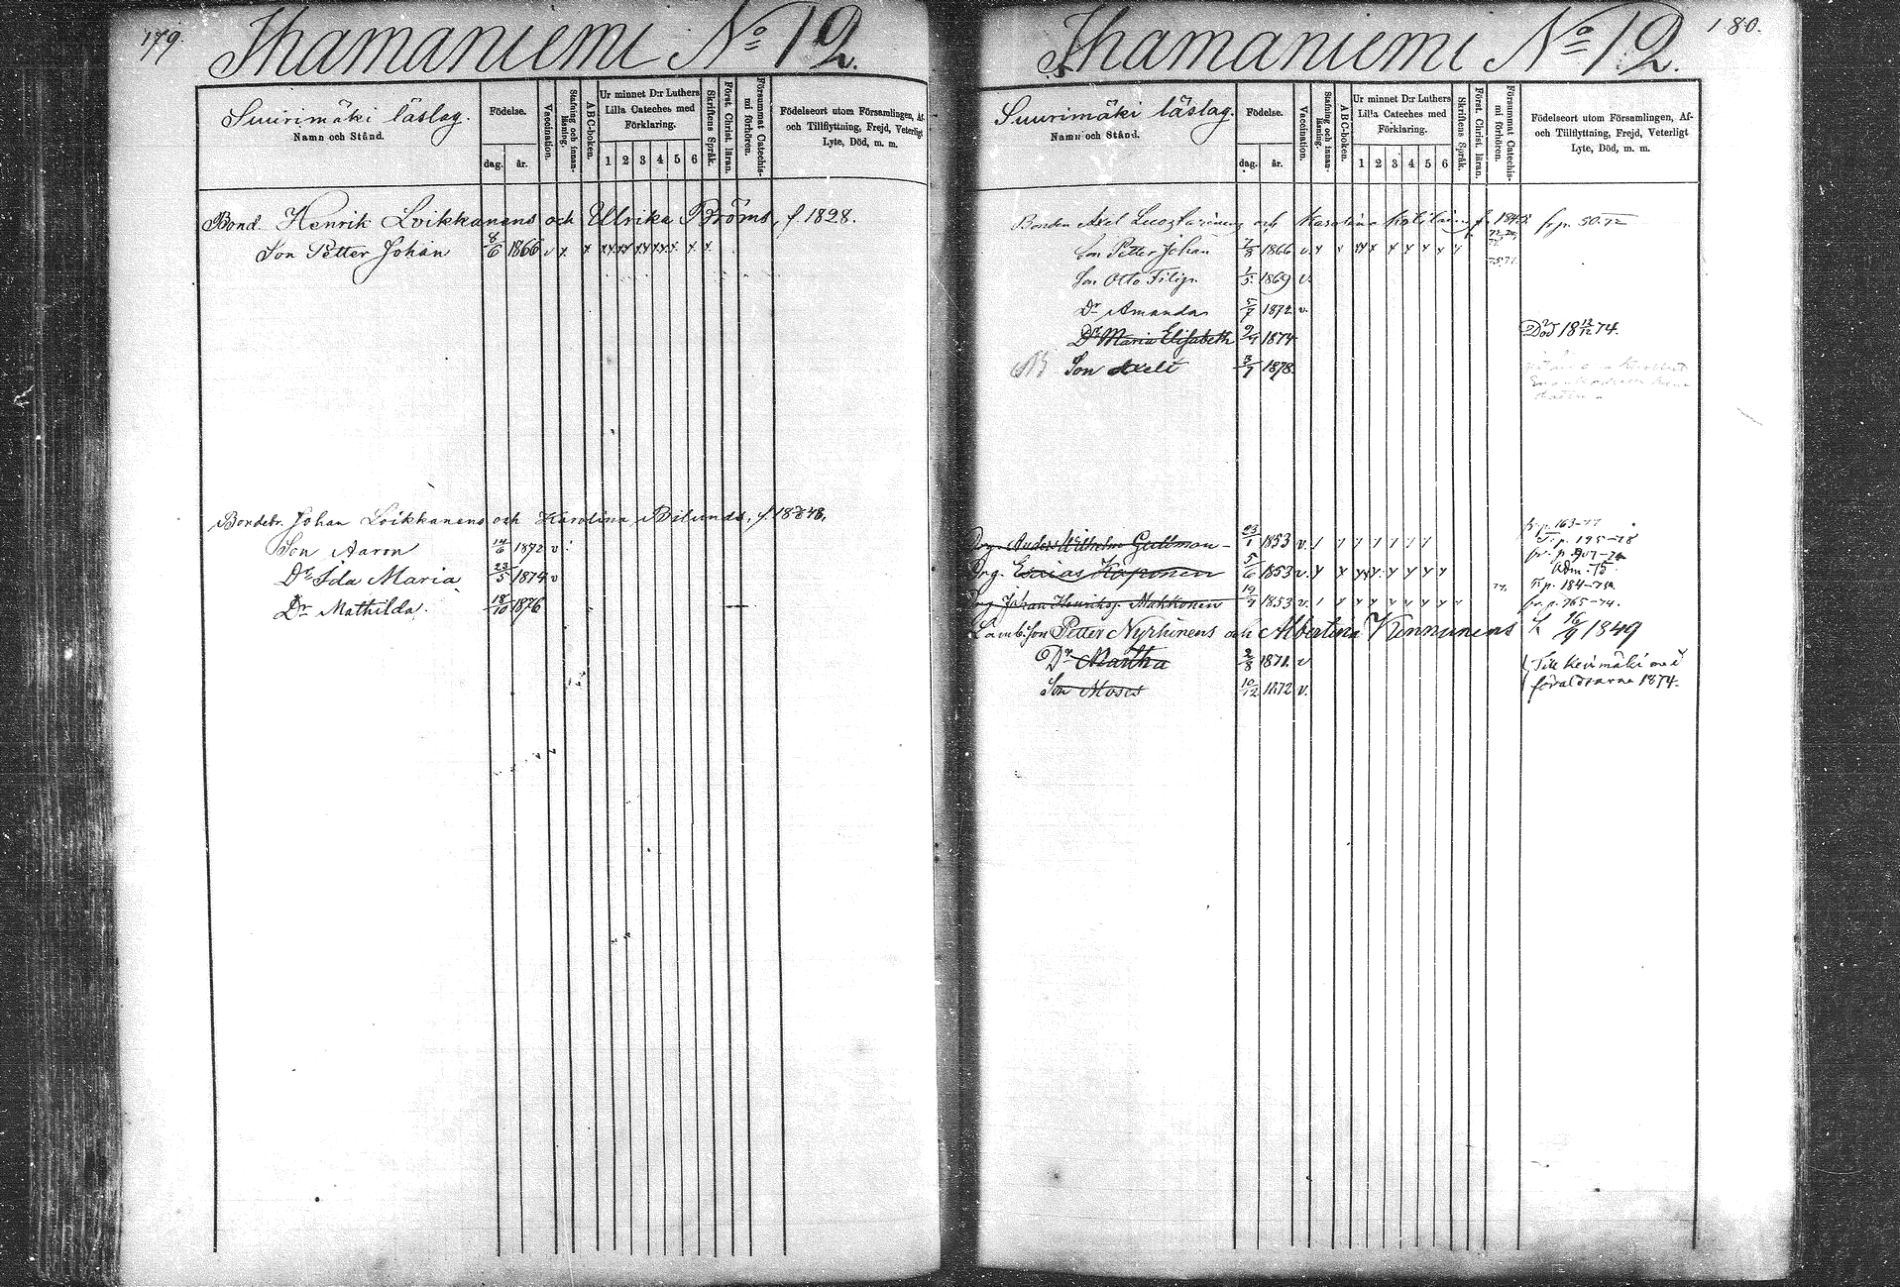 179.
Ihamaniemi No 12.
Suurimäki läslag.
Namn och Stånd.
Födelse.
dag. år.
Vaccination.
Stafning och innan-läsning.
ABC-boken.
Ur minnet D:r Luthers
Lilla Cateches med
Förklaring.
1 2 3 4 5 6
Skriftens Språk.
Först. Christ. läran.
Försummat Catechis-mi förhören.
Födelseort utom Församlingen, Af-
och Tillflyttning, Frejd, Veterligt
Lyte, Död, m. m.
Bond. Henrik Loikkanens och Ulrika Ströms, f 1828.
Son Petter Johan 8/6 1866 v x x xx xx xx xx x x x
Bondebr. Johan Loikkanens och Karolina Bilunds, f.
Son Aaron 14/6 1872 v
Dr Ida Maria 23/5 1874 v
Dr Mathilda. 18/10 1876
180.
Ihamaniemi No 12.
Suurimäki läslag.
Namn och Stånd.
Födelse.
dag. år.
Vaccination.
Stafning och innan-läsning.
ABC-boken.
Ur minnet D:r Luthers
Lilla Cateches med
Förklaring.
1 2 3 4 5 6
Skriftens Språk.
Först. Christ. läran.
Försummat Catechis-mi förhören.
Födelseort utom Församlingen, Af-
och Tillflyttning, Frejd, Veterligt
Lyte, Död, m. m.
Bonden Axel och Karolina f. fr. p. 50-72
Son Petter Johan 7/8 1866 v. x x xx x x x x x x
Son Otto Filip. 1/5 1869 v.
Dr Amanda 5/7 1872 v.
Dr Maria Elisabeth 9/9 1874 Död 18 12/12 74.
Son Axel 3/7 1878.
fr. p. 163-77
Drg. Anders Wilhelm Gullman 23/1 1853 v. T. p. 195-78
Drg. Esaias Käponen 5/6 1853 v. x x x x x x x x
Adm. 75.
T. p. 184-78
Drg Johan Henriksp. Makkonen 19/9 1853 v. fr. p. 765-74.
Lamb. Son Petter Nyrhinens och Albertina Kinnunens f. 16/9 1849
Dr Martha 2/8 1871 v Till Kerimäki med
Son Moses 10/12 1872 v. föräldrarna 1874.